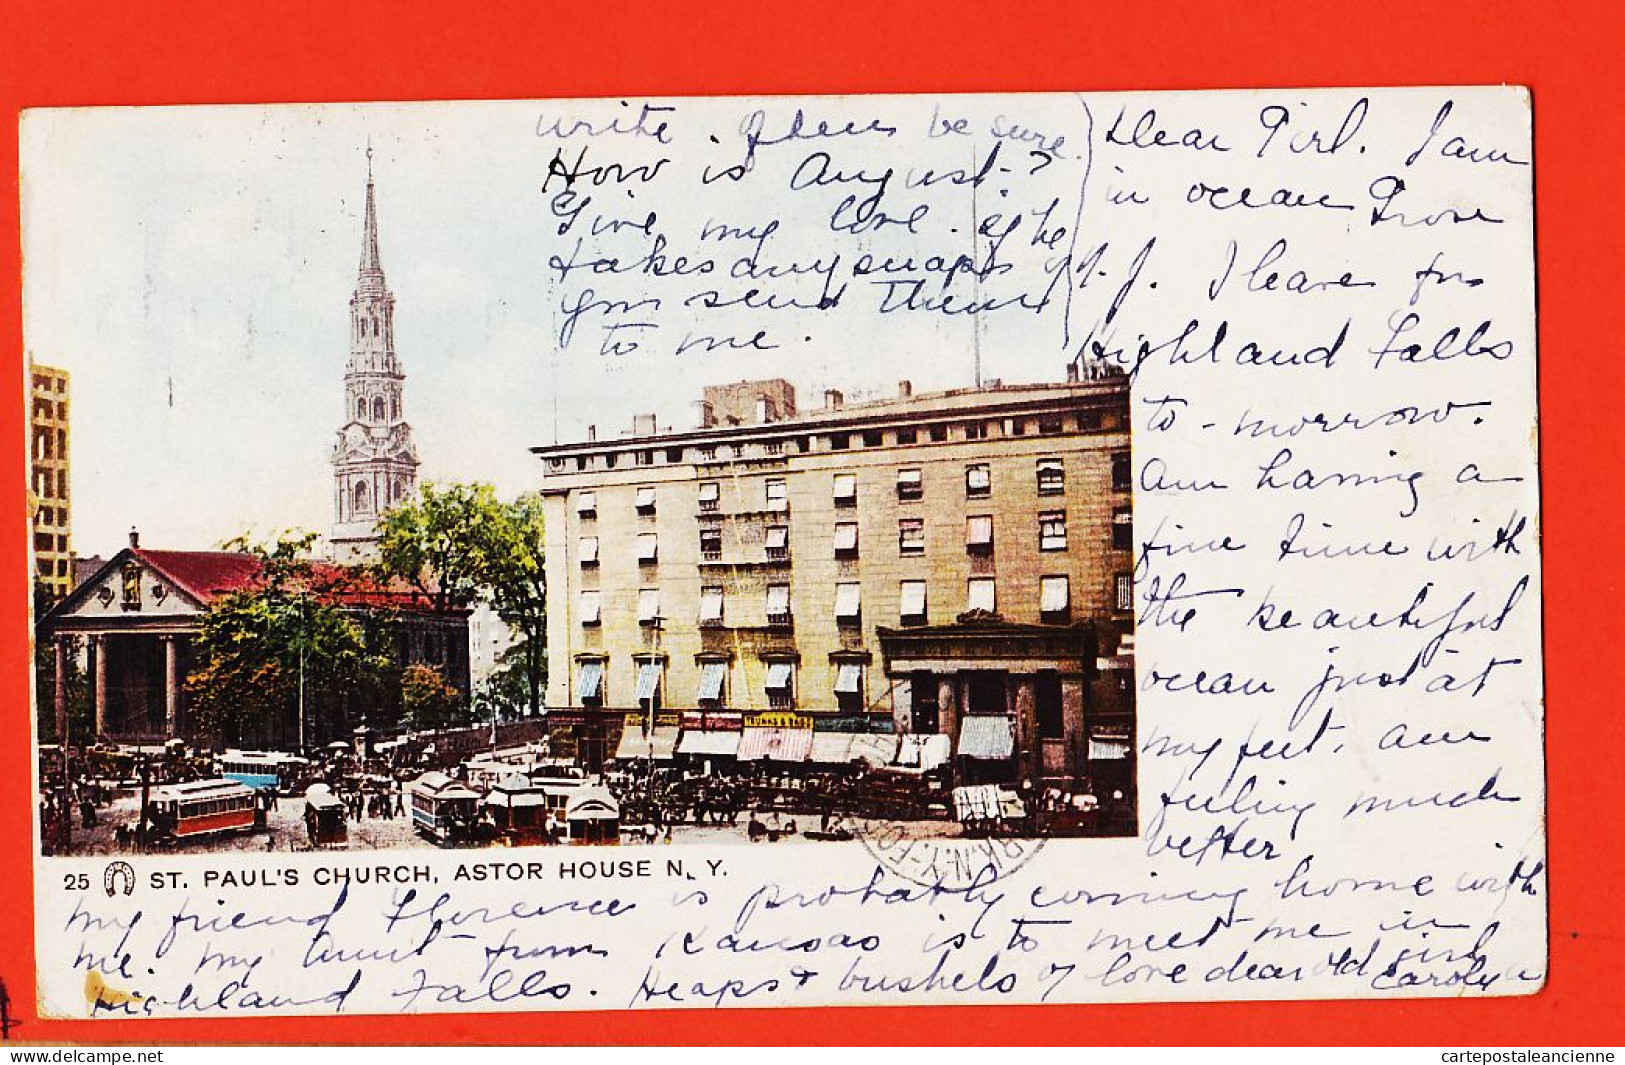 Dear Girl. I am
in ocean Grove
N. J. I leave for
Highland Falls
to-morrow.
Am having a
fine time with
the beautiful
ocean just at
my feet. Am
feeling much
better
my friend Florence is probably coming home with
me. my Aunt from Kansas is to meet me in
Highland Falls. Heaps & bushels of love dear old girl
Carolyn
write often be sure.
How is August?
Give my love. if he
takes any snaps of
you send them
to me.
TRUNKS & BAGS
25 ST. PAUL'S CHURCH, ASTOR HOUSE N. Y.
delcampe.net
cartepostaleancienne